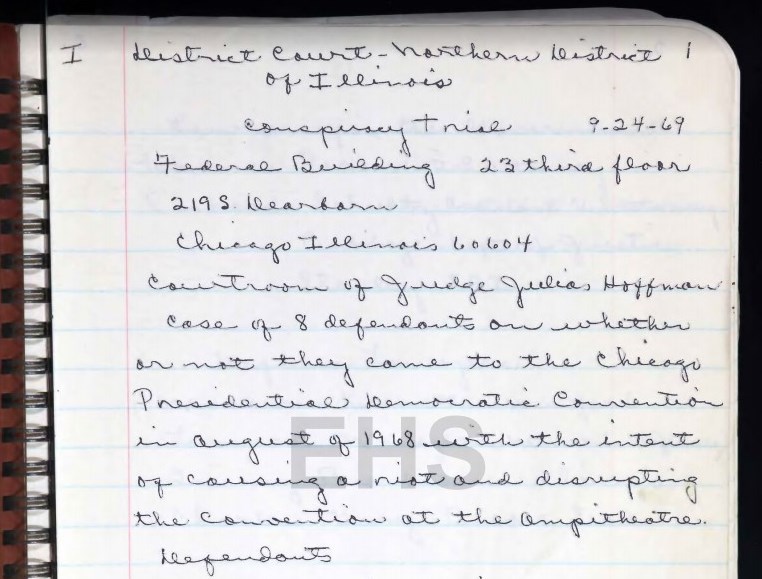 I District Court - Northern District 1
of Illinois
Conspiracy Trial 9-24-69
Federal Building 23 third floor
219 S. Dearborn
Chicago Illinois 60604
Courtroom of Judge Julias Hoffman
Case of 8 defendants on whether
or not they came to the Chicago
Presidential Democratic Convention
in August of 1968 with the intent
of causing a riot and disrupting
the convention at the ampitheatre.
Defendants
EHS